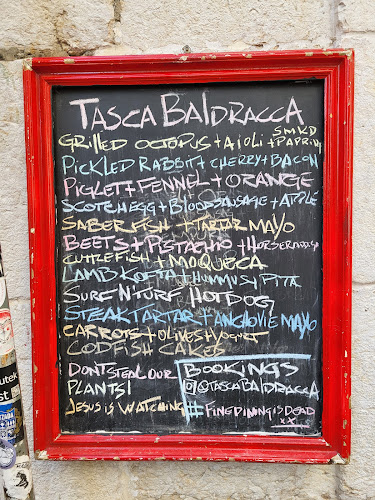 TASCA BALDRACCA
GRILLED OCTOPUS + AIOLI + SMKD PAPRIKA
PICKLED RABBIT + CHERRY + BACON
PIGLET + FENNEL + ORANGE
SCOTCH EGG + BLOOD SAUSAGE + APPLE
SABER FISH + TARTAR MAYO
BEETS + PISTACHIO + HORSERADISH
CUTTLEFISH + MOQUECA
LAMB KOFTA + HUMMUS + PITTA
SURF N' TURF HOTDOG
STEAK TARTAR + ANCHOVIE MAYO
CARROTS + OLIVES + YOGURT
CODFISH CAKES
DONT STEAL OUR
PLANTS!
JESUS IS WATCHING
BOOKINGS
@TASCABALDRACCA
#FINEDININGISDEAD
xx